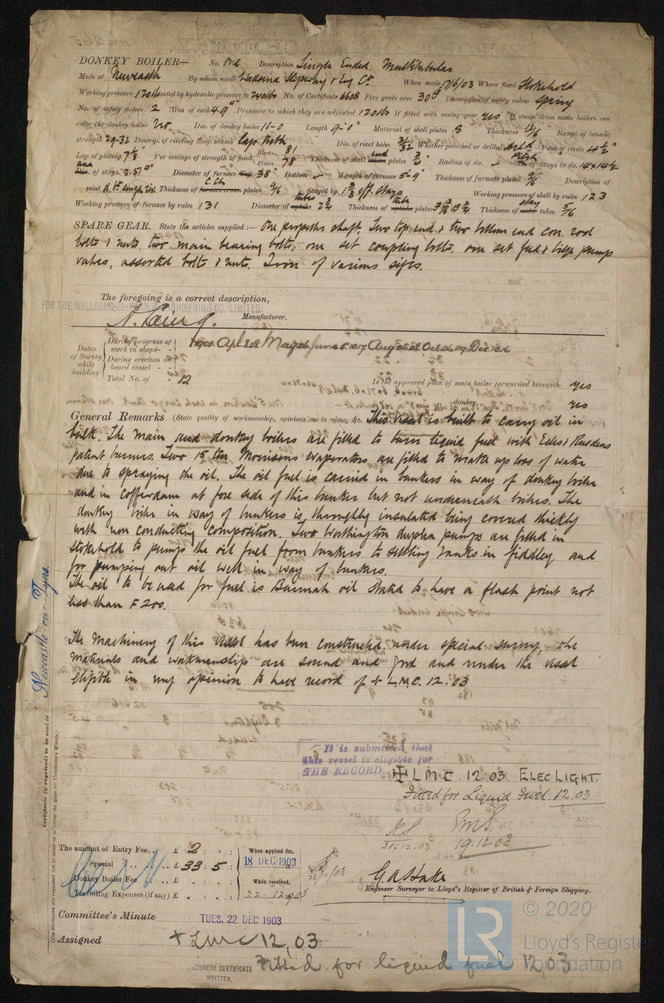 DONKEY BOILER— No. One Description Single Ended, Multitubular
Made at Newcastle By whom made Wallsend Slipway & Eng Co. When made 5/6/03 Where fixed Stokehold
Working pressure 120 lbs tested by hydraulic pressure to 240 lbs No. of Certificate 6608 Fire grate area 30 Description of safety valves Spring
No. of safety valves 2 Area of each 4.9 Pressure to which they are adjusted 120 lbs If fitted with easing gear yes If steam from main boilers can
enter the donkey boiler No. Dia. of donkey boiler 11-0 Length 9-1" Material of shell plates S Thickness Range of tensile
strength 29-32 Descrip. of riveting long. seams Lap, treble Dia. of rivet holes Whether punched or drilled drld Pitch of rivets
Lap of plating 7 5/8 Per centage of strength of joint Rivets 81 Plate 78 Thickness of shell end plates Radius of do. Stays to do.
Dia. of stays. Diameter of furnace 38" Bottom Length of furnace 5-9" Thickness of furnace plates Description of
joint Thickness of C Ch plates Stayed by stays Working pressure of shell by rules 123
Working pressure of furnace by rules 131 Diameter of tube Thickness of tube plates Thickness of stay tubes 5/16
SPARE GEAR. State the articles supplied:— One propeller shaft, Two top end & two bottom end con. rod
bolts & nuts, two main bearing bolts, one set coupling bolts. one set feed & bilge pump
valves, assorted bolts & nuts, Iron of various sizes.
The foregoing is a correct description,
FOR THE WALLSEND SLIPWAY & ENGINEERING CO. LIMITED.
Manufacturer.
Dates of Survey while building
During progress of work in shops - - 1903. Apl. May June Aug Oct Dec.
During erection on board vessel - -
Total No. of 12
Is the approved plan of main boiler forwarded herewith yes
donkey yes
General Remarks (State quality of workmanship, opinions as to class, &c. This vessel is built to carry oil in
bulk. The main and donkey boilers are fitted to burn liquid fuel with Edes & Rusdens
patent burners. Two 15 ton Morisons evaporators are fitted to make up loss of water
due to spraying the oil. The oil fuel is carried in bunkers in way of donkey boiler
and in cofferdam at fore side of this bunker but not underneath boilers. The
donkey boiler in way of bunkers is throughly insulated being covered thickly
with non conducting composition. Two Worthington duplex pumps are fitted in
stokehold to pump the oil fuel from bunkers to settling tanks in fiddley and
for pumping out oil well in way of bunkers.
The oil to be used for fuel is Burmah oil stated to have a flash point not
less than F 200.
The machinery of this vessel has been constructed under special survey, the
materials and workmanship are sound and good and render the vessel
eligible in my opinion to have record of + L.M.C. 12.03
It is submitted that
this vessel is eligible for
THE RECORD. + L.M.C. 12.03 ELEC LIGHT.
Fitted for Liquid Fuel. 12.03
21.12.03 19.12.03
Newcastle on Tyne.
Certificate (if required) to be sent to
The amount of Entry Fee.. £ 2 : : When applied for,
Special £ 33 : 5 : 18 DEC 1903
Donkey Boiler Fee £ : : When received,
Travelling Expenses (if any) £ : : 22.12.1903
Engineer Surveyor to Lloyd's Register of British & Foreign Shipping.
Committee's Minute TUES. 22 DEC 1903
Assigned + LMC 12,03
Fitted for liquid fuel 12,03
MACHINERY CERTIFICATE
WRITTEN.
LR © 2020
Lloyd's Register
Foundation